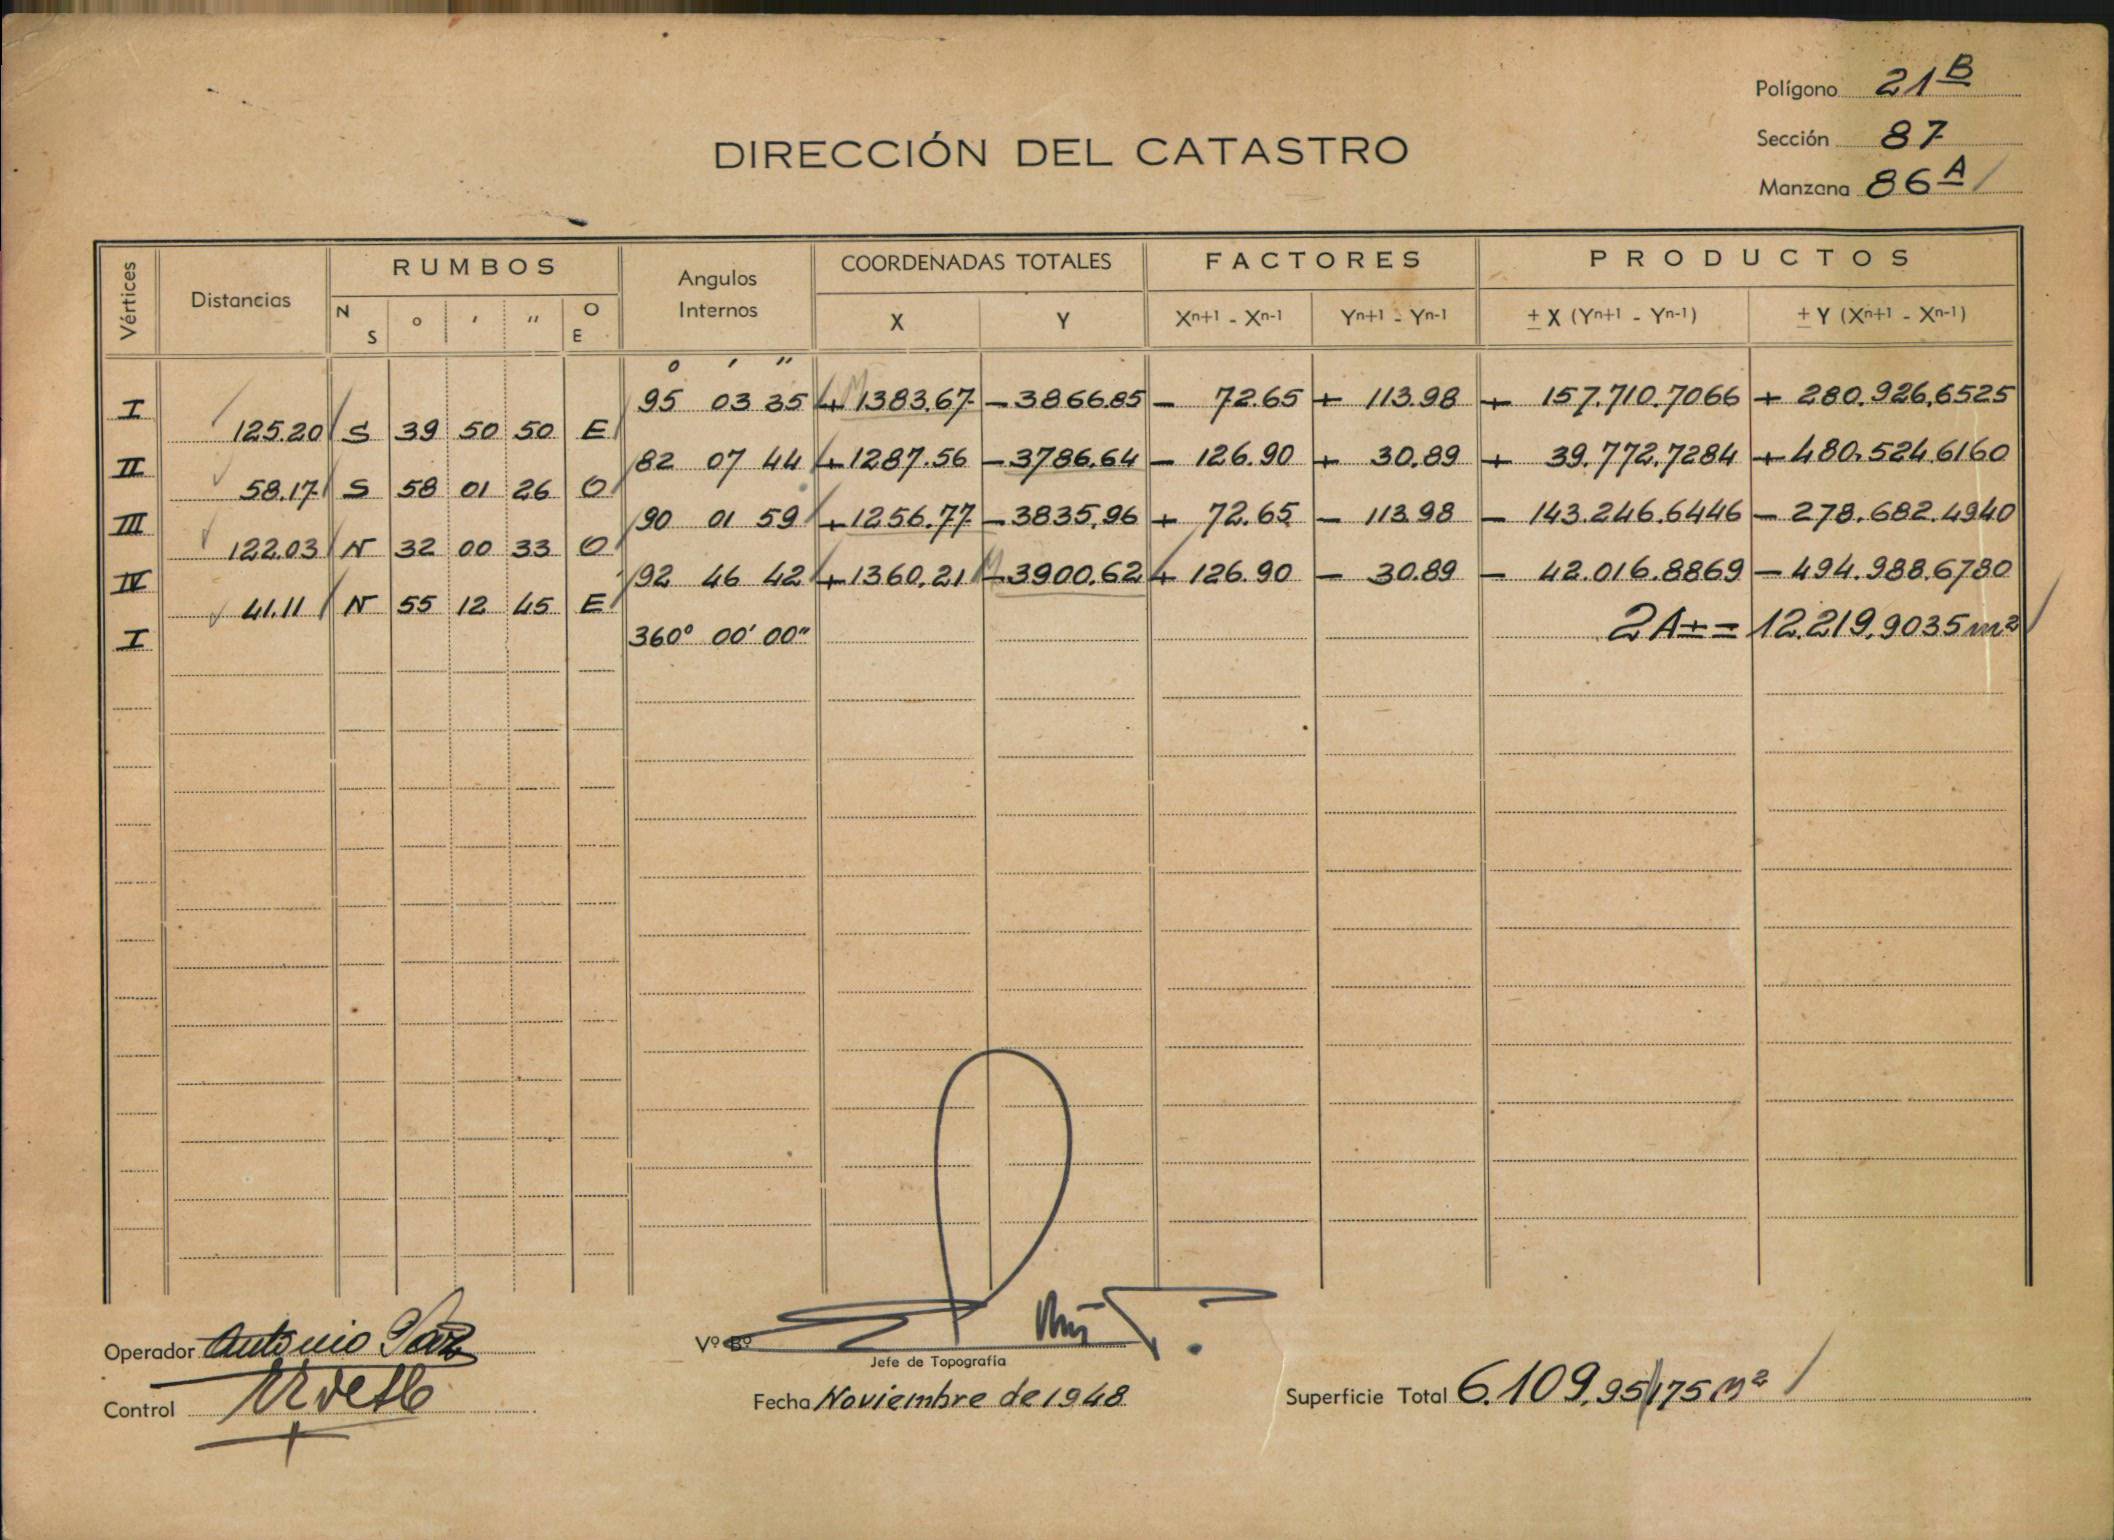 Polígono 21 B
Sección 87
Manzana 86 A
DIRECCIÓN DEL CATASTRO
Vértices Distancias RUMBOS Angulos Internos COORDENADAS TOTALES FACTORES PRODUCTOS
N S o ' " O E X Y Xn+1 - Xn-1 Yn+1 - Yn-1 ± X (Yn+1 - Yn-1) ± Y (Xn+1 - Xn-1)
o ' "
I 95 03 35 + 1383,67 - 3866.85 - 72.65 + 113.98 + 157.710.7066 + 280.926,6525
125.20 S 39 50 50 E
II 82 07 44 + 1287.56 - 3786.64 - 126.90 + 30.89 + 39.772,7284 + 480.524.6160
58.17 S 58 01 26 O
III 90 01 59 + 1256.77 - 3835,96 + 72.65 - 113.98 - 143.246.6446 - 278.682.4940
122.03 N 32 00 33 O
IV 92 46 42 + 1360,21 - 3900,62 + 126.90 - 30.89 - 42.016.8869 - 494.988.6780
41.11 N 55 12 45 E
I 360° 00' 00" 2A ± = 12.219,9035 m²
Operador Antonio
Control
Vº Bº
Jefe de Topografía
Fecha Noviembre de 1948
Superficie Total 6.109,95175 m²